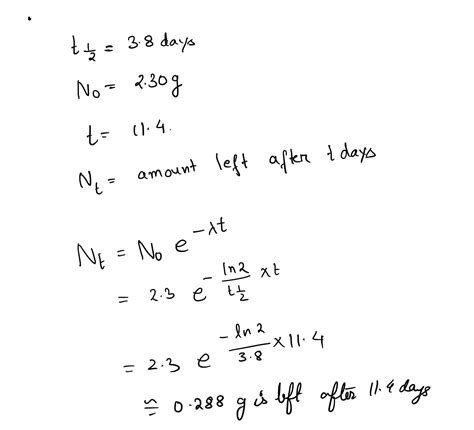 t½ = 3.8 days
N₀ = 2.30 g
t = 11.4.
Nₜ = amount left after t days
Nₜ = N₀ e^(-λt)
= 2.3 e^(- ln2/t½ × t)
= 2.3 e^(-ln 2/3.8 × 11.4)
≃ 0.288 g is left after 11.4 days